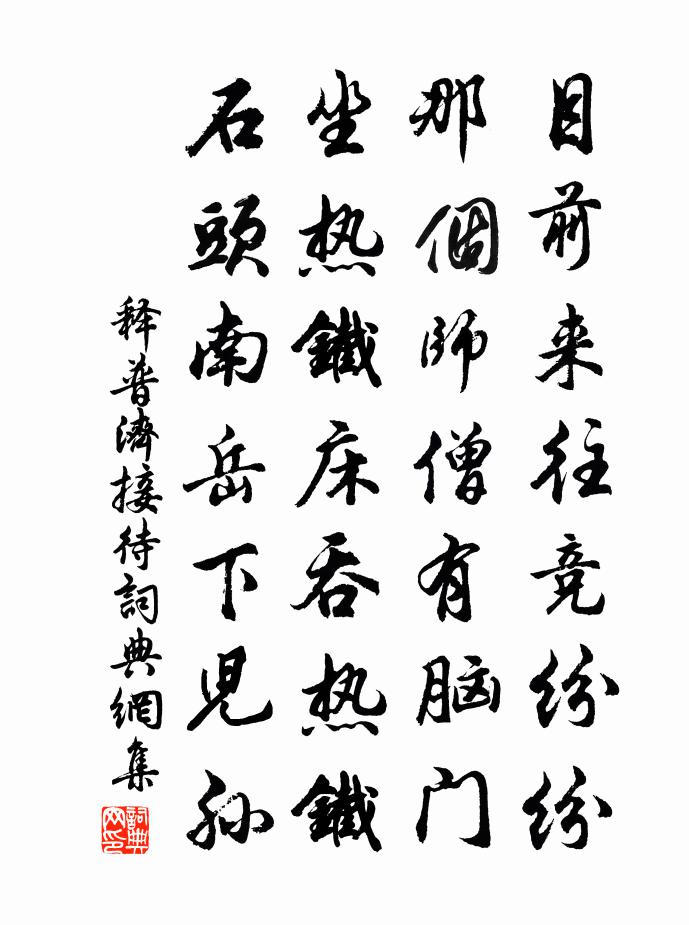 目前来往竞纷纷
那個師僧有脑门
坐热鐵床吞热鐵
石頭南岳下兒孙
释普濟接待詞典網集
詞典网印